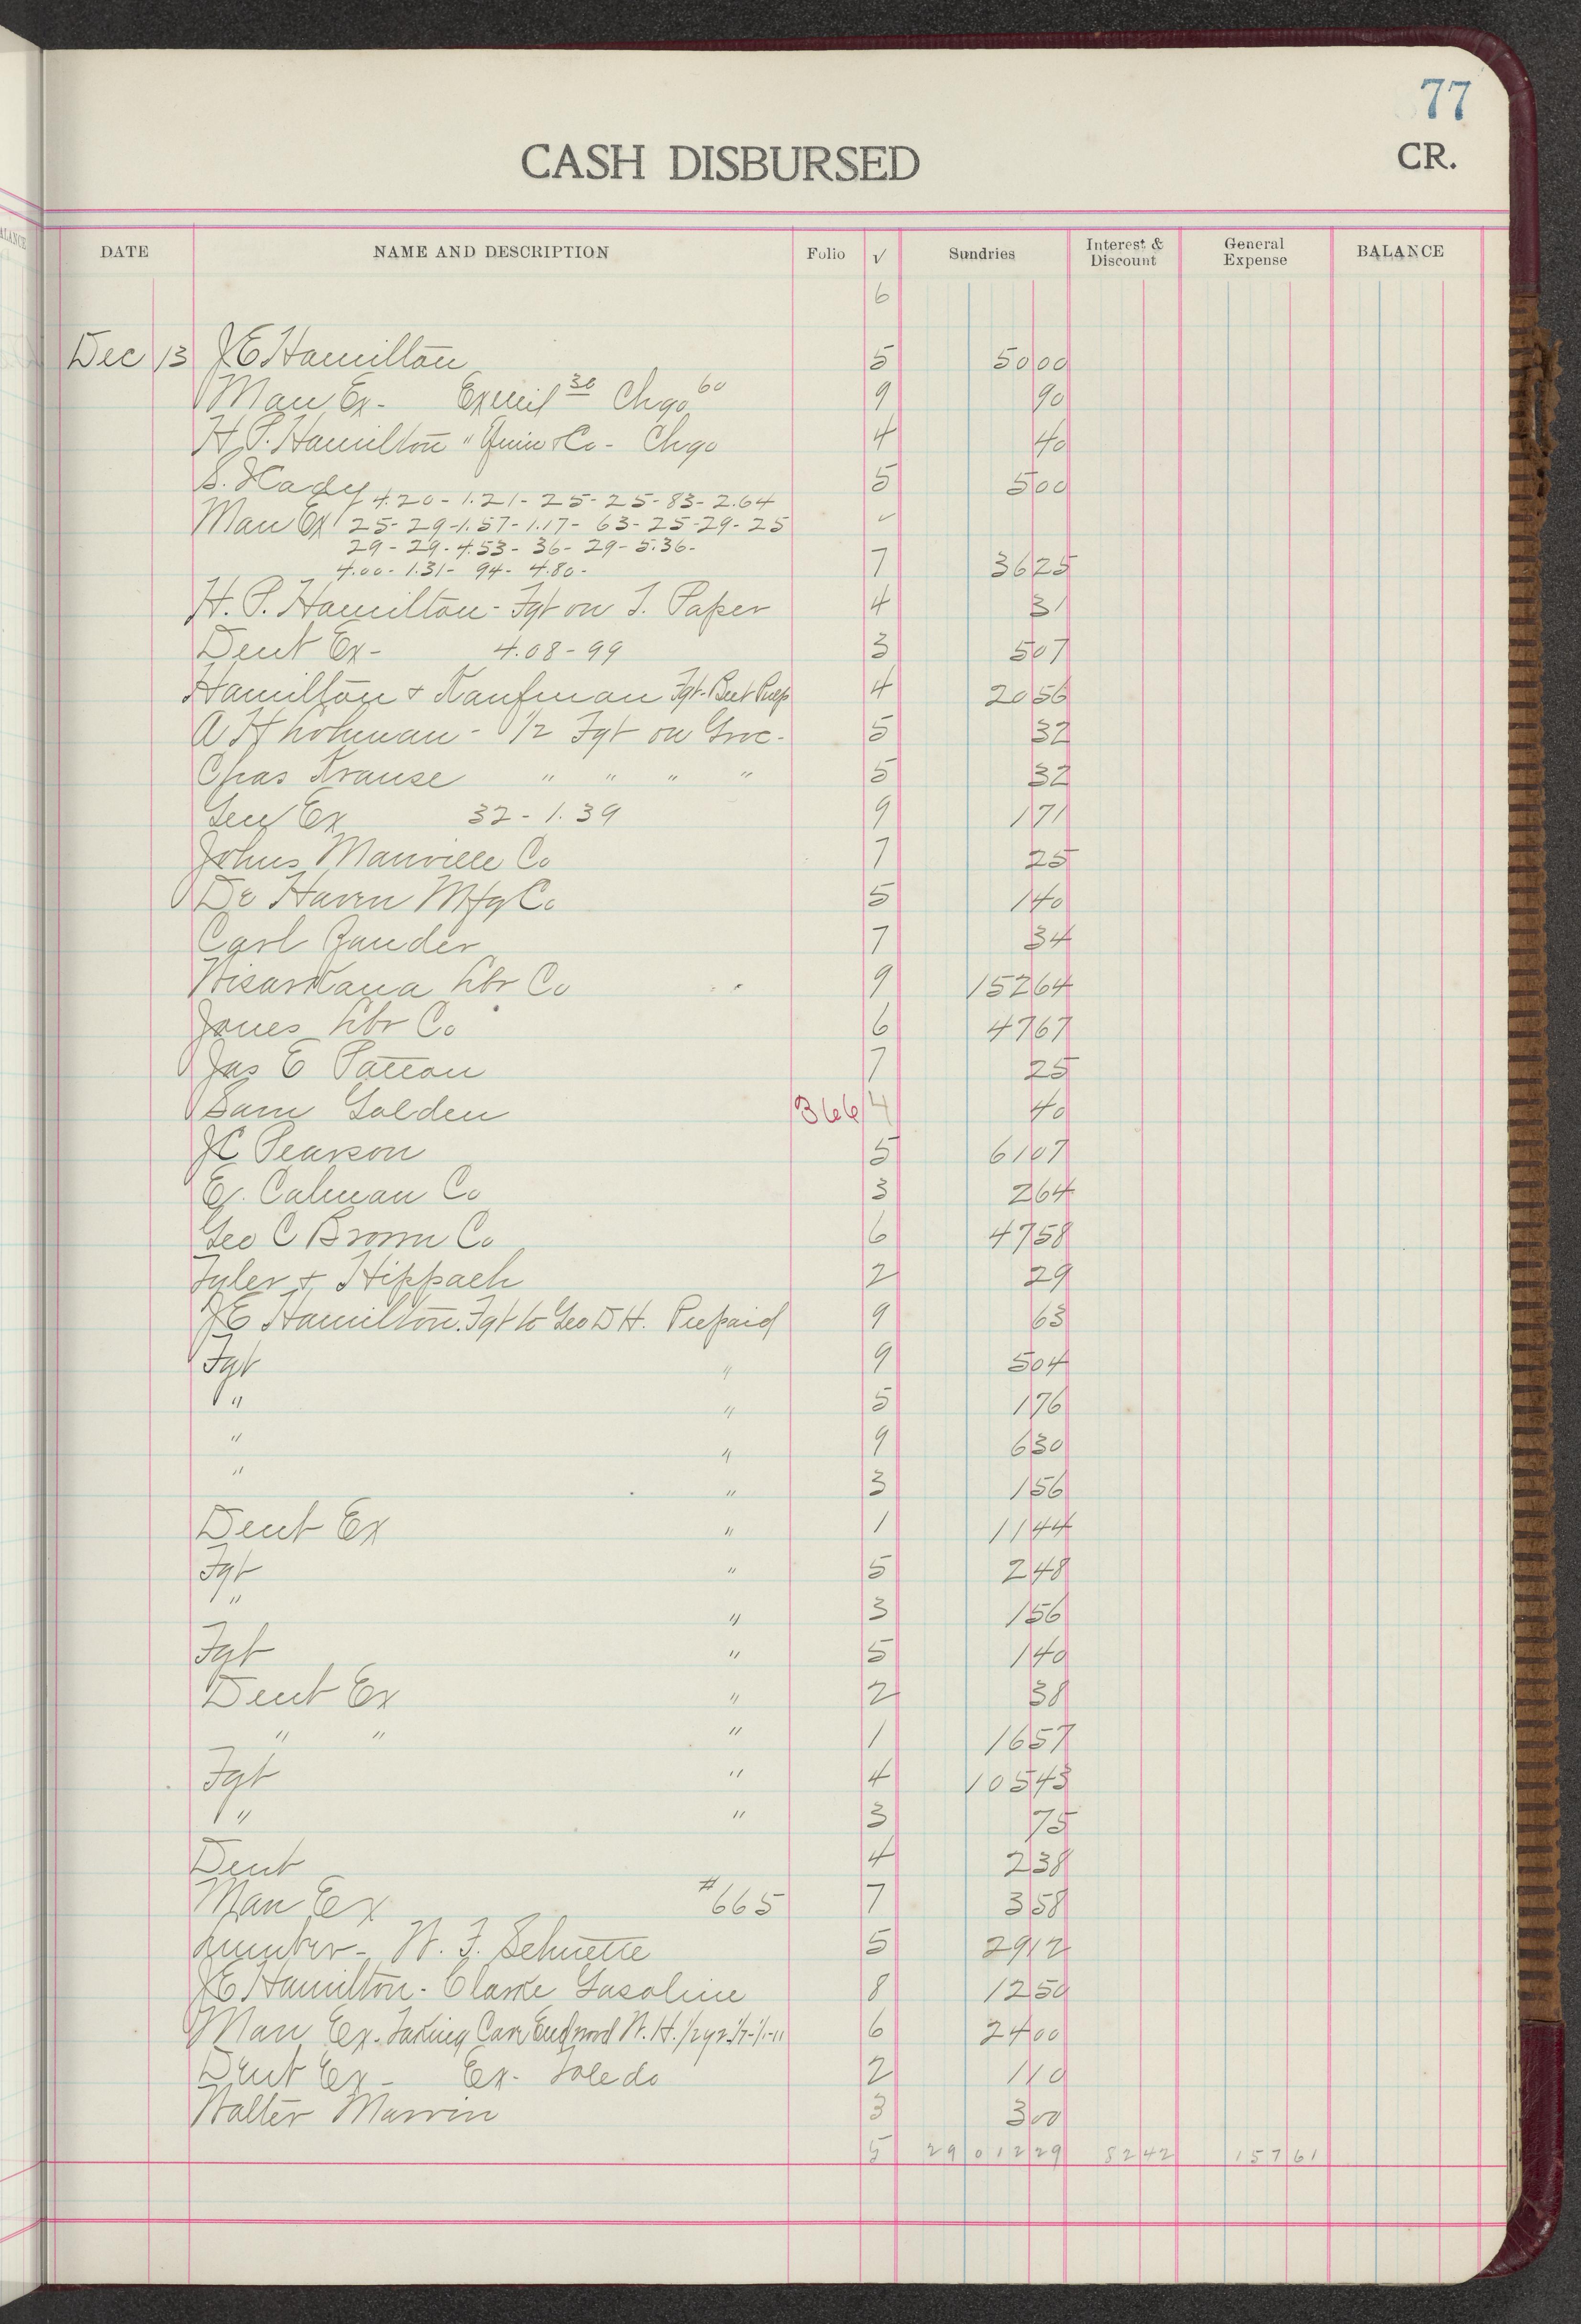 77
CASH DISBURSED CR.
DATE NAME AND DESCRIPTION Folio √ Sundries Interest & Discount General Expense BALANCE
6
Dec 13 J E Hamilton 5 50 00
Man Ex - 30 Chgo 60 9 90
H. P. Hamilton " & Co - Chgo 4 40
S. Kady 5 5 00
4.20 - 1.21 - 25 - 25 - 83 - 2.64
Man Ex 25 - 29 - 1.57 - 1.17 - 63 - 25 - 29 - 25 ✓
29 - 29 - 4.53 - 36 - 29 - 5.36 -
4.00 - 1.31 - 94 - 4.80 - 7 36 25
H. P. Hamilton - Fgt on T. Paper 4 31
Dent Ex - 4.08 - 99 3 5 07
Hamilton & Kaufman Fgt - Beet Pulp 4 20 56
A H Lohman - 1/2 Fgt on Groc - 5 32
Chas Krause " " " " 5 32
Gen Ex 32 - 1.39 9 1 71
Johns Manville Co 7 25
De Haven Mfg Co 5 1 40
Carl Zander 7 34
Wisarkana Lbr Co 9 152 64
Jones Lbr Co 6 47 67
Jas E Patton 7 25
Sam Golden 366 4 40
J C Pearson 5 61 07
E. Calman Co 3 2 64
Geo C Brown Co 6 47 58
Tyler & Hippach 2 29
J E Hamilton. Fgt to Geo D H. Prepaid 9 63
Fgt " 9 5 04
" " 5 1 76
" " 9 6 30
" " 3 1 56
Dent Ex " 1 11 44
Fgt " 5 2 48
" " 3 1 56
Fgt " 5 1 40
Dent Ex " 2 38
" " " 1 16 57
Fgt " 4 105 43
" " 3 75
Dent 4 2 38
Man Ex #665 7 3 58
Lumber - W. F. Schuette 5 29 12
J E Hamilton - Clarke Gasoline 8 12 50
Man Ex - Taking Care W. H. 1/2 yr 6 24 00
Dent Ex - Ex - Toledo 2 1 10
Walter Marvin 3 3 00
5 29 012 29 52 42 157 61